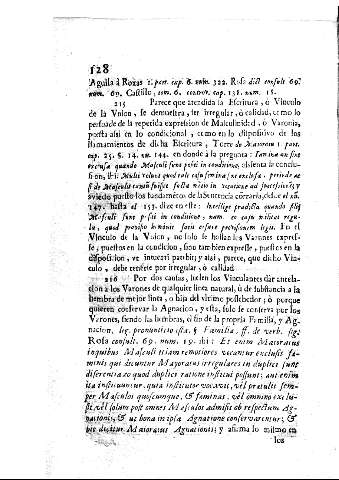 128
Aguila à Roxas 1. part. cap. 6. num. 322. Rosa dict. consult. 69.
num. 69. Castillo, tom. 6. controv. cap. 138. num. 15.
215 Parece que atendida la Escritura, ò Vinculo
de la Vnion, se demuestra, ser irregular, ò calidad, como lo
persuade de la repetida expresion de Masculinidad, ò Varonia,
posta asi en lo condicional, como en lo dispositivo de los
llamamientos de dicha Escritura, Torre de Maiorat. 1. part.
cap. 25. §. 14. num. 144. en donde à la pregunta: Famina an sint
exclusa quando Masculi sunt positi in conditione,
sion, ibi: Multi volunt quod
si de Masculis
oviedo puesto los fundamentos de la Sentencia contraria, desde el n.
147. hasta el 153. dize en este: quando sij
Masculi sunt positi in conditione, num. ex capu militat regu-
la, quod provisio hominis facit cessare provisionem legis. En el
Vinculo de la Vnion, no solo se hallan los Varones expresse-
se, puestos en la condicion, sino tambien expresse, puestos en
la disposicion, ve intuenti patebit; y asi, parece, que dicho Vin-
culo, debe tenerse por irregular, ò calidad
216 Por dos causas, suelen los Vinculares dar antela-
cion à los Varones de qualquier linea natural, ò de substancia à la
hembra de mejor linea, o hija del vltimo posseedor; ò porque
quieren conservar la Agnacion, y esta, solo se conserva por los
Varones, siendo las hembras, el fin de la propria Familia, y Ag-
nacion, leg. pronuntiatio §. Familia, ff. de verb. sig.
Rosa consult. 69. num. 19. ibi: Et enim Maioratus
inquibus Masculi etiam remotiores vocantur exclusis fæ-
minis qui dicuntur Maioratus irregulares in duplici sunt
differentia ex quo duplici ratione institui possunt: aut enim
ita instituuntur, quia institutor vocavit, vel prætulit sem-
per Masculos quoscumque, & fæminas, vel omnino exclu-
sit, vel solum post omnes Masculos admisit ob respectum Ag-
nationis, & ut bona in ipsa Agnatione conserventur; &
hic dicitur Maioratus Agnationis; y afirma lo mismo en
los